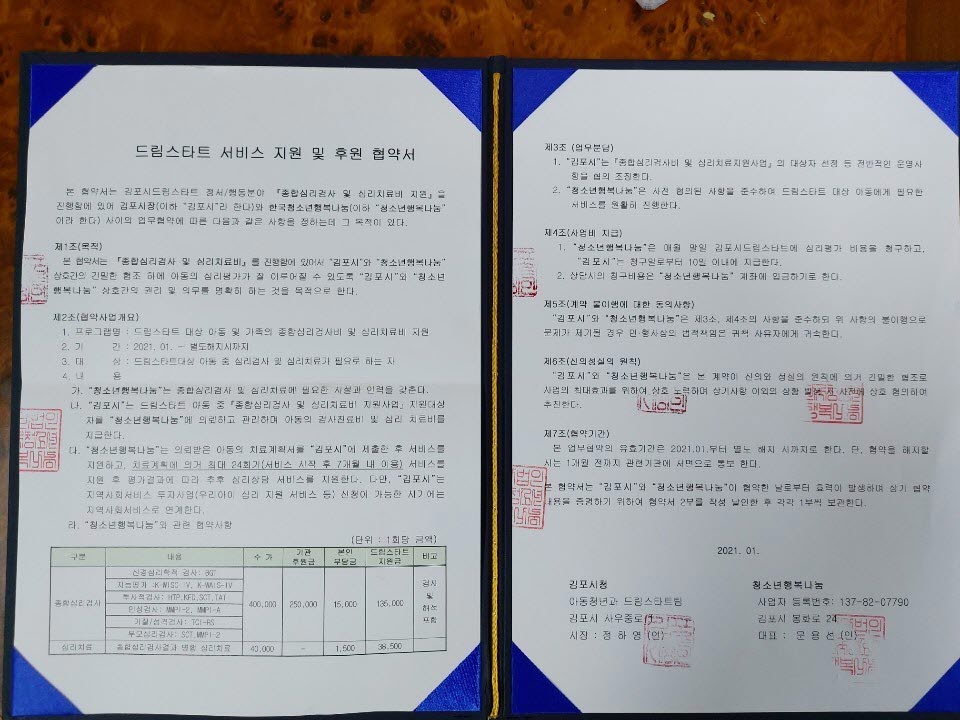 드림스타트 서비스 지원 및 후원 협약서
본 협약서는 김포시드림스타트 정서/행동분야 『종합심리검사 및 심리치료비 지원』을
진행함에 있어 김포시장(이하 "김포시"라 한다)와 한국청소년행복나눔(이하 "청소년행복나눔"
이라 한다) 사이의 업무협약에 따른 다음과 같은 사항을 정하는데 그 목적이 있다.
제1조(목적)
본 협약서는 『종합심리검사 및 심리치료비』를 진행함에 있어서 "김포시"와 "청소년행복나눔"
상호간의 긴밀한 협조 하에 아동의 심리평가가 잘 이루어질 수 있도록 "김포시"와 "청소년
행복나눔" 상호간의 권리 및 의무를 명확히 하는 것을 목적으로 한다.
제2조(협약사업개요)
1. 프로그램명 : 드림스타트 대상 아동 및 가족의 종합심리검사비 및 심리치료비 지원
2. 기 간 : 2021. 01. ― 별도해지시까지
3. 대 상 : 드림스타트대상 아동 중 심리검사 및 심리치료가 필요로 하는 자
4. 내 용
가. "청소년행복나눔"는 종합심리검사 및 심리치료에 필요한 시설과 인력을 갖춘다.
나. "김포시"는 드림스타트 아동 중『종합심리검사 및 심리치료비 지원사업』지원대상
자를 "청소년행복나눔"에 의뢰하고 관리하며 아동의 검사진료비 및 심리 치료비를
지급한다.
다. "청소년행복나눔"는 의뢰받은 아동의 치료계획서를 "김포시"에 제출한 후 서비스를
지원하고, 치료계획에 의거 최대 24회기(서비스 시작 후 7개월 내 이용) 서비스를
지원 후 평가결과에 따라 추후 심리상담 서비스를 지원한다. 다만, "김포시"는
지역사회서비스 투자사업(우리아이 심리 지원 서비스 등) 신청이 가능한 시기에는
지역사회서비스로 연계한다.
라. "청소년행복나눔"와 관련 협약사항
(단위 : 1회당 금액)
구분 내용 수 가 기관 후원금 본인 부담금 드림스타트 지원금 비고
종합심리검사 신경심리학적 검사: BGT 400,000 250,000 15,000 135,000 검사 및 해석 포함
지능평가 : K-WISC-IV, K-WAIS-IV
투사적검사: HTP,KFD,SCT,TAT
인성검사: MMPI-2, MMPI-A
기질/성격검사: TCI-RS
부모심리검사: SCT,MMPI-2
심리치료 종합심리검사결과 병합 심리치료 40,000 - 1,500 38,500
제3조 (업무분담)
1. "김포시"는『종합심리검사비 및 심리치료지원사업』의 대상자 선정 등 전반적인 운영사
항을 협의 조정한다.
2. "청소년행복나눔"은 사전 협의된 사항을 준수하며 드림스타트 대상 아동에게 필요한
서비스를 원활히 진행한다.
제4조(사업비 지급)
1. "청소년행복나눔"은 매월 말일 김포시드림스타트에 심리평가 비용을 청구하고,
"김포시"는 청구일로부터 10일 이내에 지급한다.
2. 상담사의 청구비용은 "청소년행복나눔" 계좌에 입금하기로 한다.
제5조(계약 불이행에 대한 동의사항)
"김포시"와 "청소년행복나눔"은 제3조, 제4조의 사항을 준수하되 위 사항의 불이행으로
문제가 제기될 경우 민·형사상의 법적책임은 귀책 사유자에게 귀속한다.
제6조(신의성실의 원칙)
"김포시"와 "청소년행복나눔"은 본 계약이 신의와 성실의 원칙에 의거 긴밀한 협조로
사업의 최대효과를 위하여 상호 노력하며 상기사항 이외의 상황 발생 시 사전에 상호 협의하여
추진한다.
제7조(협약기간)
본 업무협약의 유효기간은 2021.01.부터 별도 해지 시까지로 한다. 단, 협약을 해지할
시는 1개월 전까지 관련기관에 서면으로 통보 한다.
본 협약서는 "김포시"와 "청소년행복나눔"이 협약한 날로부터 효력이 발생하며 상기 협약
내용을 증명하기 위하여 협약서 2부를 작성 날인한 후 각각 1부씩 보관한다.
2021. 01.
김포시청
아동청년과 드림스타트팀
김포시 사우중로 1
시장 : 정 하 영 (인)
청소년행복나눔
사업자 등록번호: 137-82-07790
김포시 봉화로 24
대표 : 문 용 선 (인)